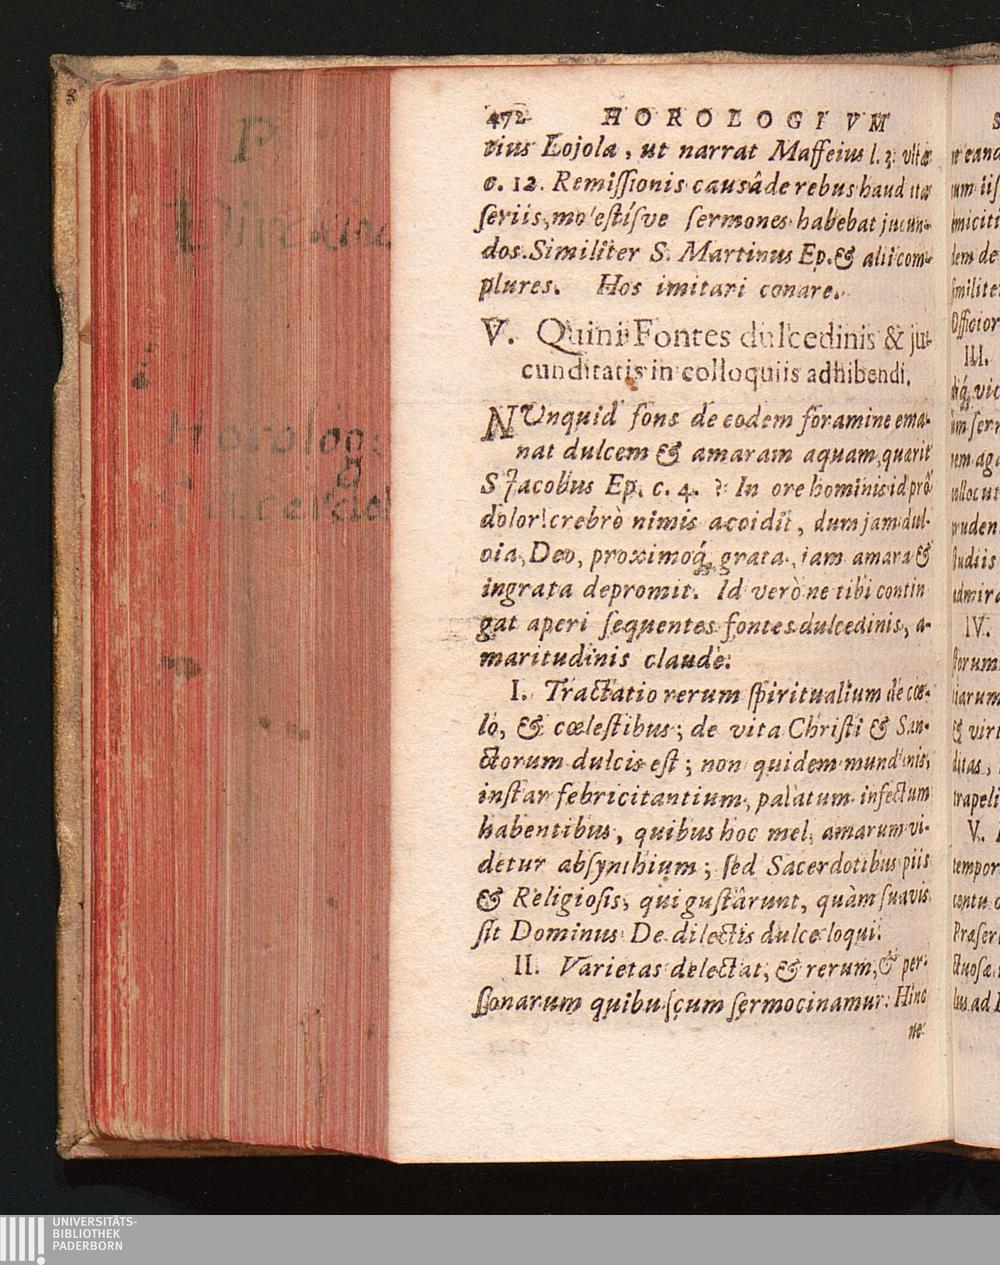 472 HOROLOGIVM
tius Lojola, ut narrat Maffeius l. 3. vitæ
c. 12. Remiſſionis causâ de rebus haud ita
ſeriis, moleſtíſve ſermones habebat jucun-
dos. Similiter S. Martinus Ep. & alii com-
plures. Hos imitari conare.
V. Quini Fontes dulcedinis & ju-
cunditatis in colloquiis adhibendi.
NUnquid fons de eodem foramine ema-
nat dulcem & amaram aquam, quærit
S Jacobus Ep. c. 4. ? In ore hominis id prô
dolor! crebrò nimis accidit, dum jam dul-
cia, Deo, proximoq́; grata, jam amara &
ingrata depromit. Id verò ne tibi contin
gat aperi ſequentes fontes dulcedinis, a-
maritudinis claude.
I. Tractatio rerum ſpiritualium de cœ-
lo, & cœleſtibus; de vita Chriſti & San-
ctorum dulcis eſt; non quidem mundanis,
inſtar febricitantium, palatum infectum
habentibus, quibus hoc mel, amarum vi-
detur abſynthium; ſed Sacerdotibus piis
& Religioſis, qui guſtârunt, quàm ſuavis
ſit Dominus De dilectis dulce loqui.
II. Varietas delectat, & rerum, & per-
ſonarum quibuſcum ſermocinamur. Hinc
ne
P
Horolog
UNIVERSITÄTS-
BIBLIOTHEK
PADERBORN